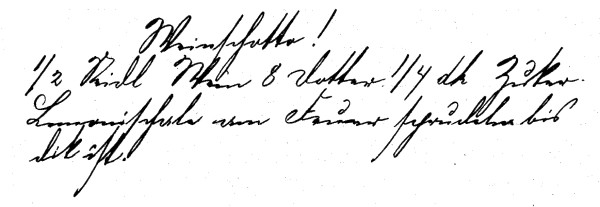 Weinschotto!
1/2 Seidl Wein 8 Dotter 1/4 dk Zuker.
Lemonischale am Feuer schprudeln bis
dik ist.